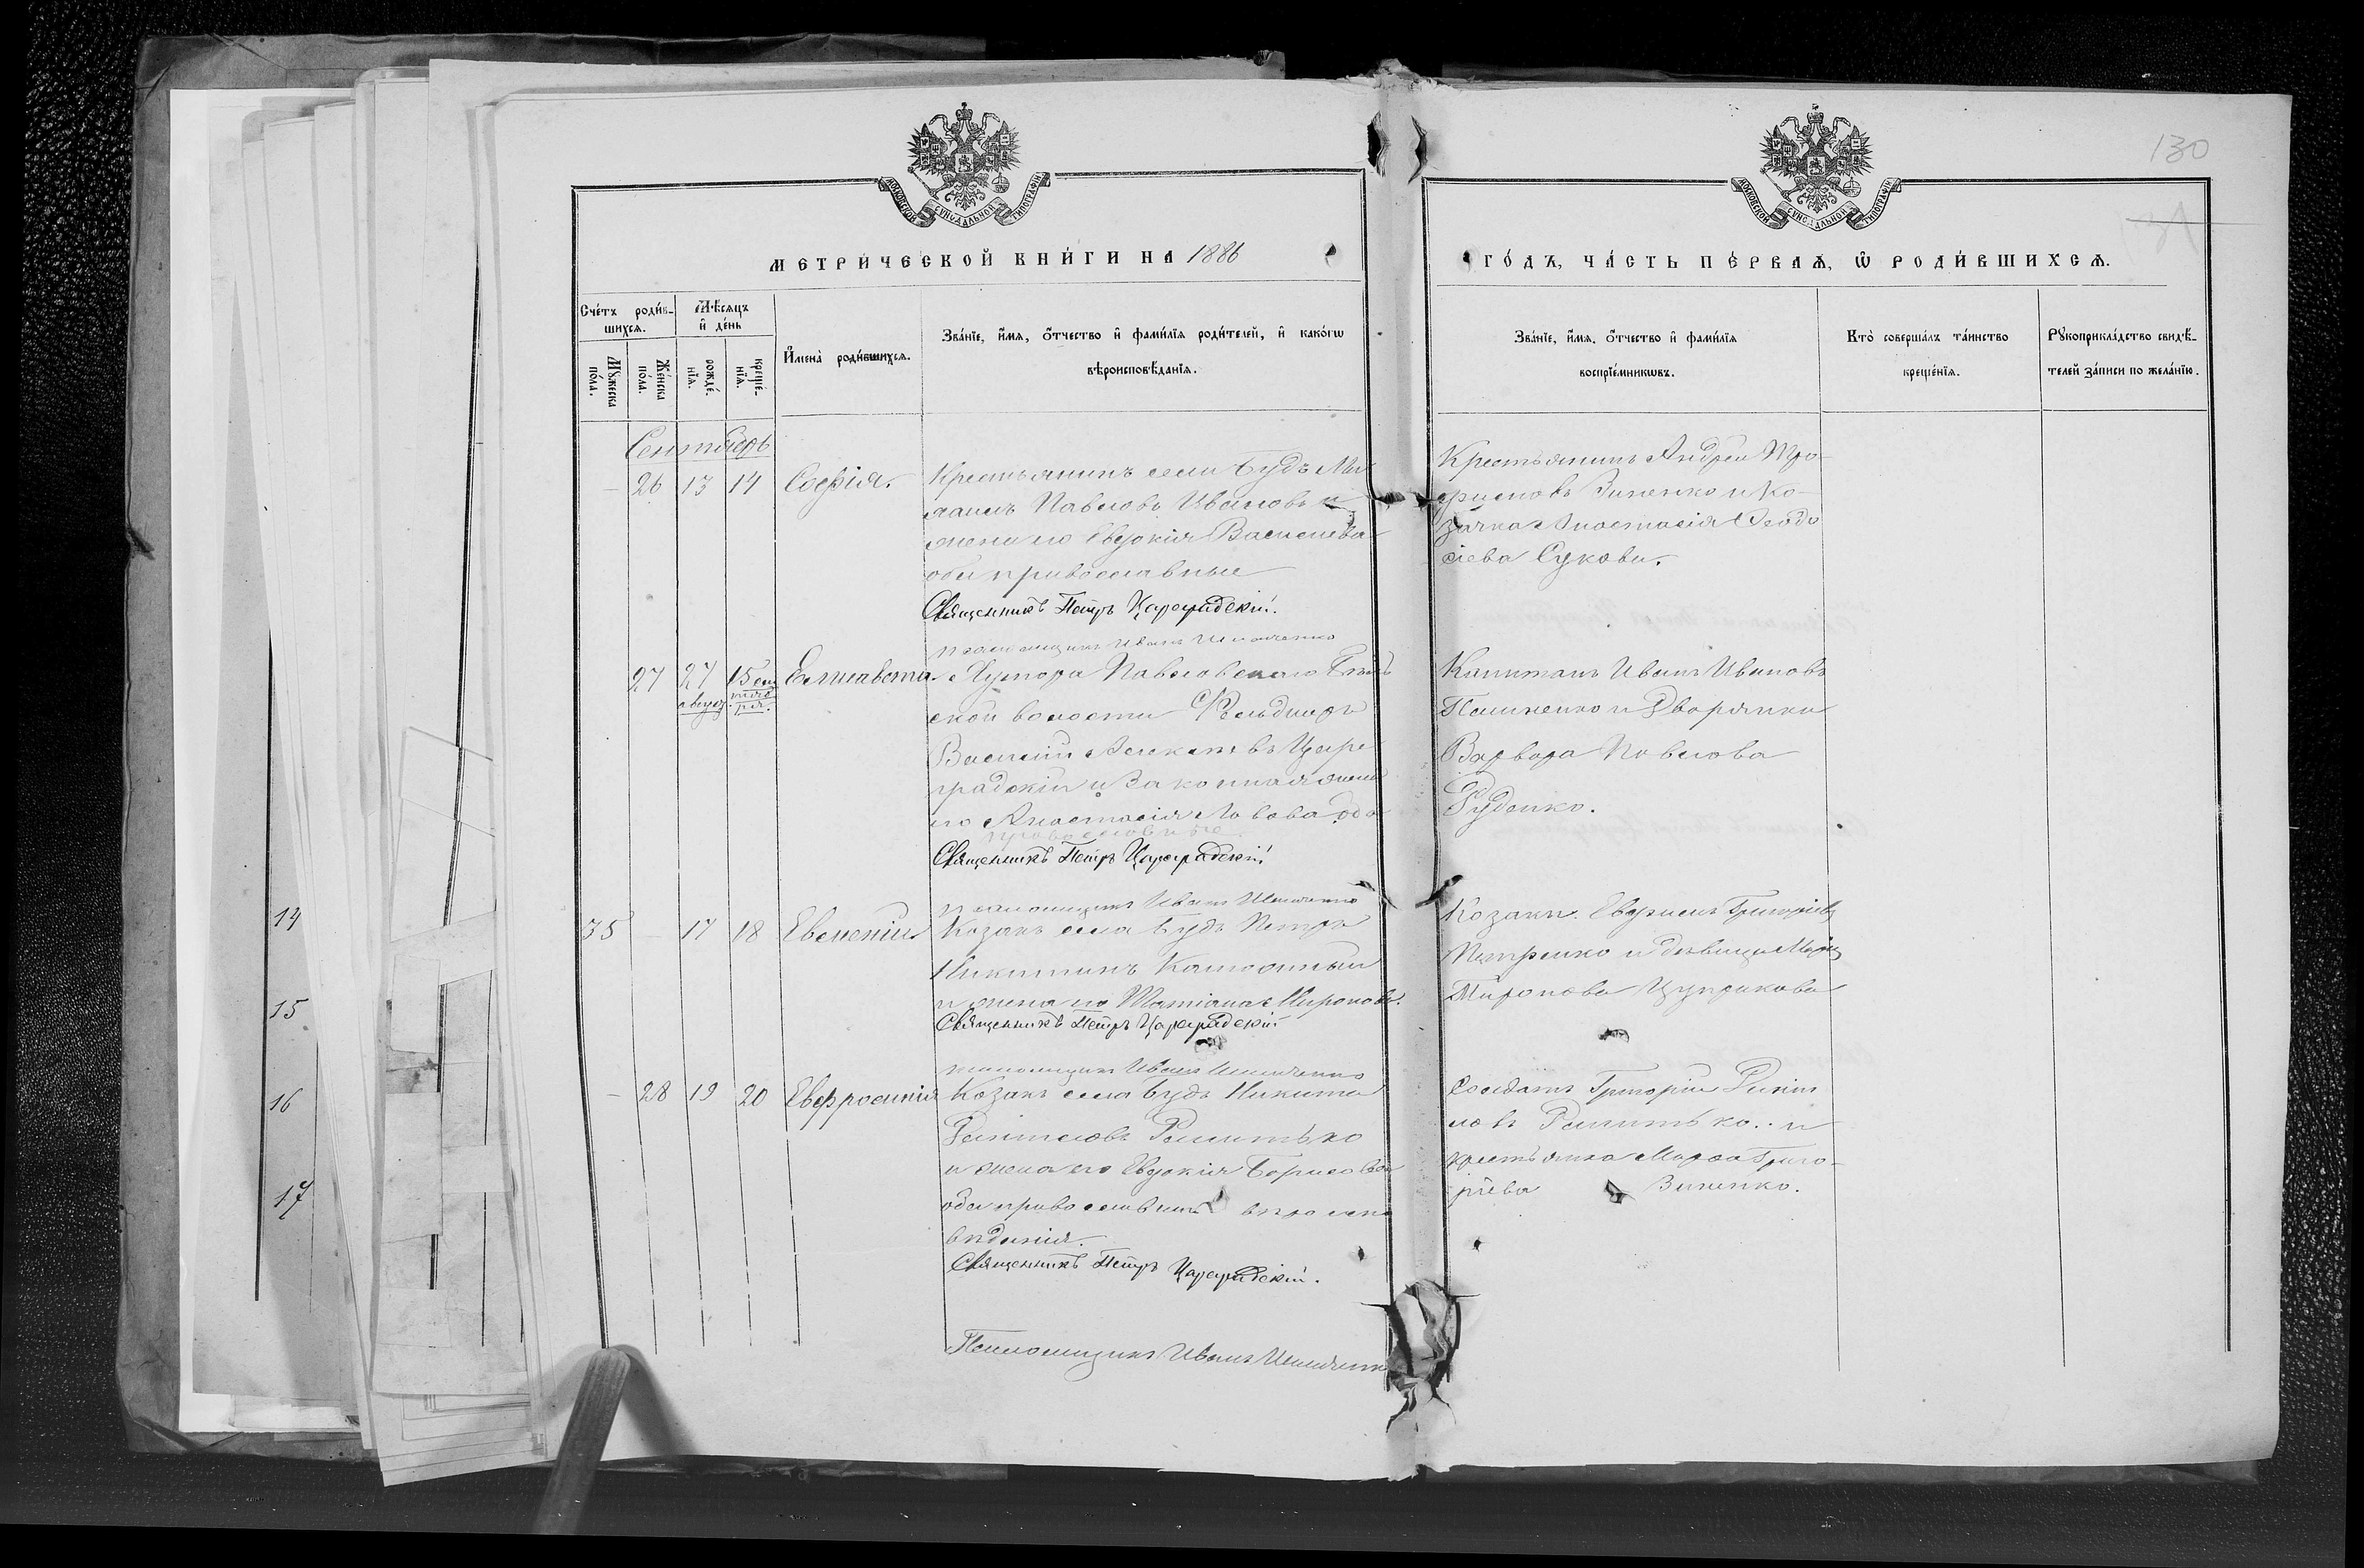 130
МОСКОВСКОЙ СѴНОДАЛЬНОЙ ТИПОГРАФІИ
МОСКОВСКОЙ СѴНОДАЛЬНОЙ ТИПОГРАФІИ
МЕТРИ́ЧЕСКОЙ КНИ́ГИ НА 1886
ГО́ДЪ, ЧА́СТЬ ПЕ́РВАѦ, Ѿ РОДИ́ВШИХСѦ.
Сче́тъ роди́в-
шихсѧ.
Мꙋжеска
по́ла.
Же́нска
по́ла.
Мѣ́сѧцъ
и҆ де́нь
рожде́-
нїѧ.
креще́-
нїѧ.
И҆мена̀ роди́вшихсѧ.
Зва́нїе, и҆́мѧ, ѻ҆́тчество и҆ фами́лїѧ роди́телей, и҆ како́гѡ
вѣроисповѣ́данїѧ.
Зва́нїе, и҆́мѧ, ѻ҆́тчество и҆ фами́лїѧ
воспрїе́мникѡвъ.
Кто̀ соверша́лъ та́инство
креще́нїѧ.
Рꙋкоприкла́дство свидѣ́-
телей за́писи по жела́нїю.
Сентябрь
26 13 14 Софія. Крестьянинъ села Будъ Ми-
хаилъ Павловъ Ивановъ и
жена его Евдокія Василиева
оба православные
Священникъ Петръ Цареградскій.
псаломщикъ Иванъ
Крестьянинъ Андрей Тро-
фимовъ Зиненко и Ко-
зачка Анастасія Ѳеодо
сіева Сукова.
27 27 август. 15 сен
тяб
ря. Елисавета. Хутора Павловскаго
ской волости Фельдшеръ
Василій Алексѣевъ Царе
градскій и Законная жена
его Анастасія Львова оба
православные
Священникъ Петръ Цареградскій
псаломщикъ Иванъ
Капитанъ Иванъ Ивановъ
и Дворянка
Варвара Павлова
Руденко.
35 17 18 Евменій Козакъ села Будъ Петръ
Никитинъ
и жена его Татіана Миронова.
Священникъ Петръ Цареградскій
псаломщикъ Иванъ
Козакъ Григоріевъ
Петренко и дѣвица Марія
Миронова Цуприкова
28 19 20 Евфросинія Козакъ села Будъ Никита
и жена его Евдокія Борисова
оба православнаго вѣроиспо
вѣданія.
Священникъ Петръ Цареградскій.
Псаломщикъ Иванъ
Солдатъ Григорій
ловъ и
крестьянка Марѳа Григо-
ріева Зиненко.
14
15
16
17